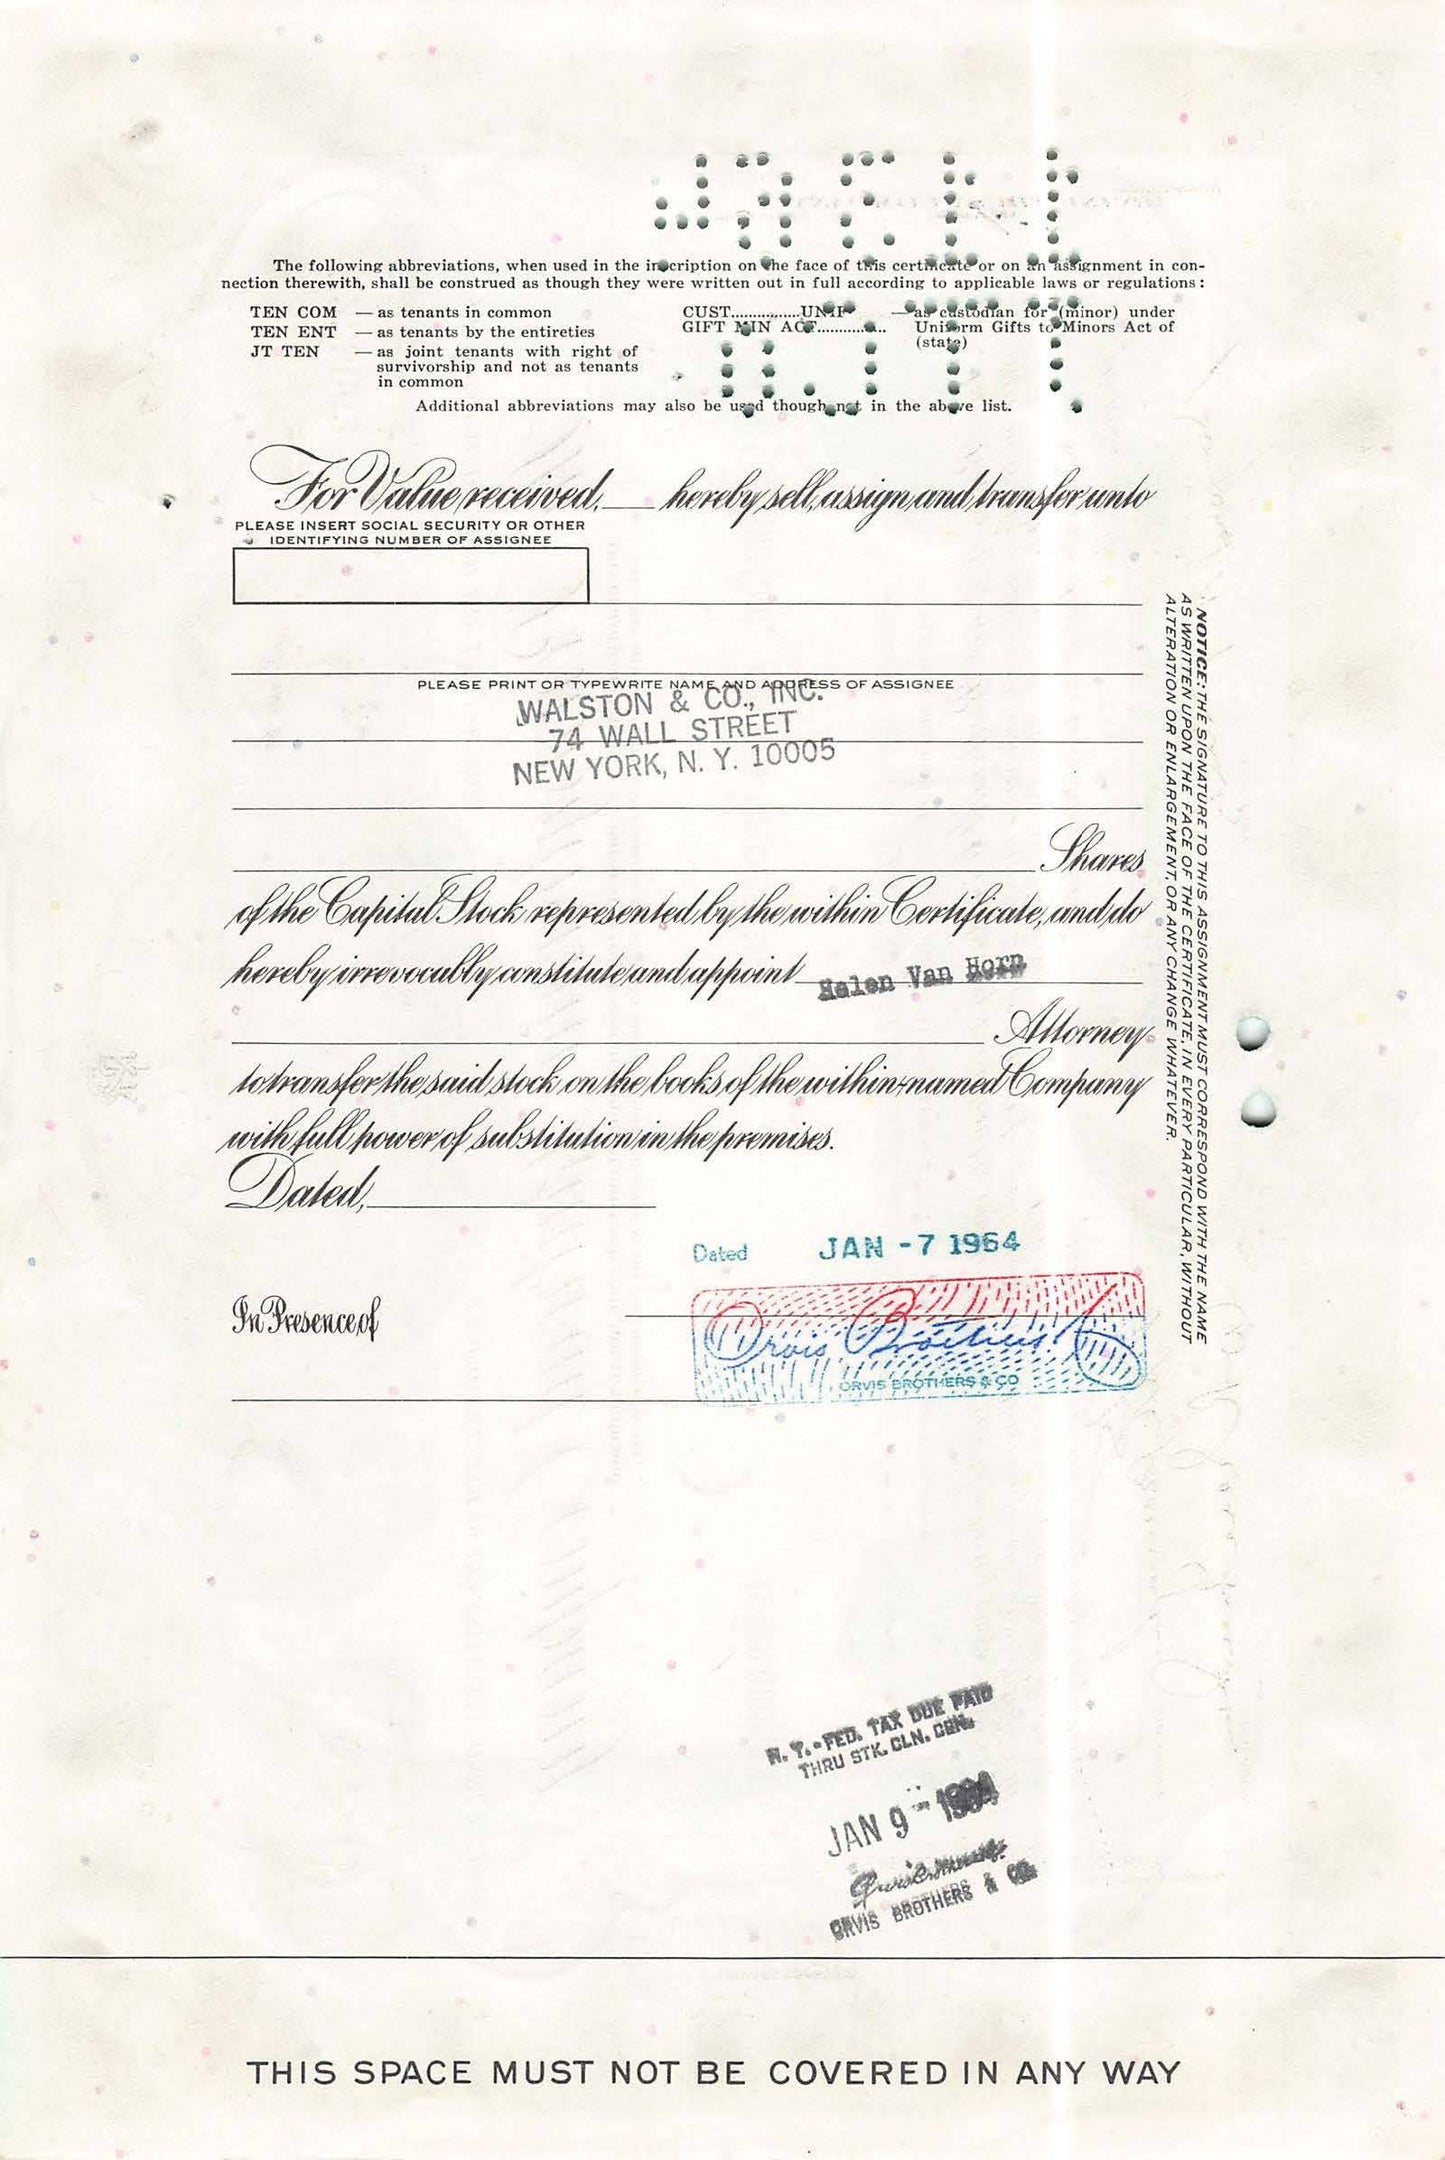 The following abbreviations, when used in the inscription on the face of this certificate or on an assignment in con-
nection therewith, shall be construed as though they were written out in full according to applicable laws or regulations:
TEN COM — as tenants in common
TEN ENT — as tenants by the entireties
JT TEN — as joint tenants with right of
survivorship and not as tenants
in common
CUST................UNIF — as custodian for (minor) under
GIFT MIN ACT................ Uniform Gifts to Minors Act of
(state)
Additional abbreviations may also be used though not in the above list.
For Value received, ____ hereby sell, assign and transfer unto
PLEASE INSERT SOCIAL SECURITY OR OTHER
IDENTIFYING NUMBER OF ASSIGNEE
PLEASE PRINT OR TYPEWRITE NAME AND ADDRESS OF ASSIGNEE
WALSTON & CO., INC.
74 WALL STREET
NEW YORK, N. Y. 10005
Shares
of the Capital Stock represented by the within Certificate, and do
hereby irrevocably constitute and appoint Helen Van Horn
Attorney
to transfer the said stock on the books of the within-named Company
with full power of substitution in the premises.
Dated,
Dated JAN -7 1964
In Presence of
Orvis Brothers & Co
ORVIS BROTHERS & CO
NOTICE: THE SIGNATURE TO THIS ASSIGNMENT MUST CORRESPOND WITH THE NAME
AS WRITTEN UPON THE FACE OF THE CERTIFICATE, IN EVERY PARTICULAR, WITHOUT
ALTERATION OR ENLARGEMENT, OR ANY CHANGE WHATEVER.
N. Y.-FED. TAX DUE PAID
THRU STK. CLN. CEN.
JAN 9 - 1964
ORVIS BROTHERS & CO.
THIS SPACE MUST NOT BE COVERED IN ANY WAY